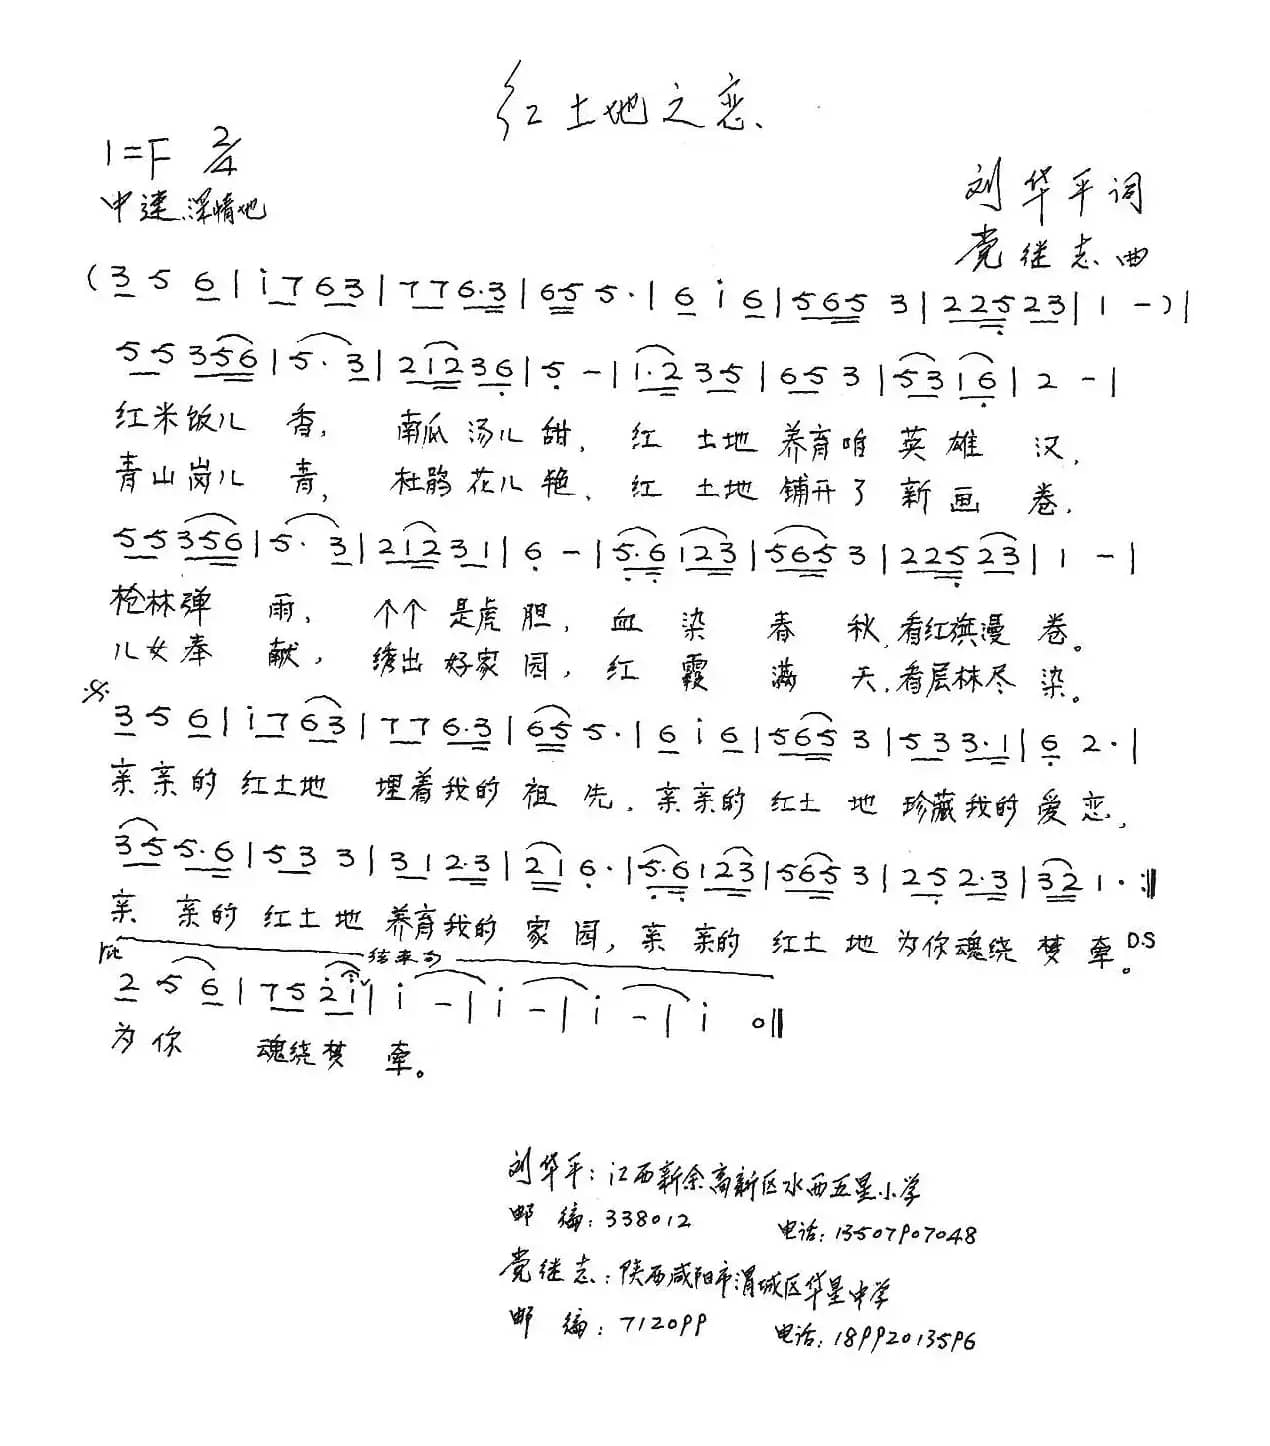 红土地之恋
1=F 2/4
中速 深情地
刘华平词
党继志曲
(3 5 6 | i 7 6 3 | 7 7 6·3 | 6 5 5· | 6 i 6 | 5 6 5 3 | 2 2 5 2 3 | 1 - ) |
5 5 3 5 6 | 5· 3 | 2 1 2 3 6 | 5 - | 1·2 3 5 | 6 5 3 | 5 3 1 6 | 2 - |
红米饭儿 香, 南瓜 汤儿 甜, 红 土地 养育咱 英 雄 汉,
青山岗儿 青, 杜鹃 花儿 艳, 红 土地 铺开了 新 画 卷,
5 5 3 5 6 | 5· 3 | 2 1 2 3 1 | 6 - | 5·6 1 2 3 | 5 6 5 3 | 2 2 5 2 3 | 1 - |
枪林弹 雨, 个个 是虎 胆, 血 染 春 秋,看红旗漫 卷。
儿女奉 献, 绣出 好家 园, 红 霞 满 天,看层林尽 染。
3 5 6 | i 7 6 3 | 7 7 6·3 | 6 5 5· | 6 i 6 | 5 6 5 3 | 5 3 3·1 | 6 2· |
亲 亲 的 红土地 埋着我的 祖 先, 亲亲的 红土 地 珍藏我的 爱 恋,
3 5 5·6 | 5 3 3 | 3 1 2·3 | 2 1 6· | 5·6 1 2 3 | 5 6 5 3 | 2 5 2·3 | 3 2 1· :||
亲 亲的 红土地 养育我的 家 园, 亲 亲的 红土 地 为你魂绕 梦 牵。 D.S
结束句
2 5 6 | 7 5 2 i | i - | i - | i - | i 0 ||
为 你 魂绕梦 牵。
刘华平: 江西新余高新区水西五星小学
邮 编: 338012 电话: 13507907048
党继志: 陕西咸阳市渭城区华星中学
邮 编: 712099 电话: 18992013596